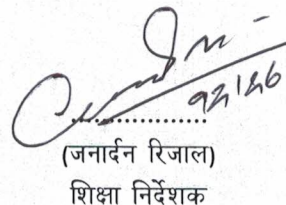 (जनार्दन रिजाल)
शिक्षा निर्देशक